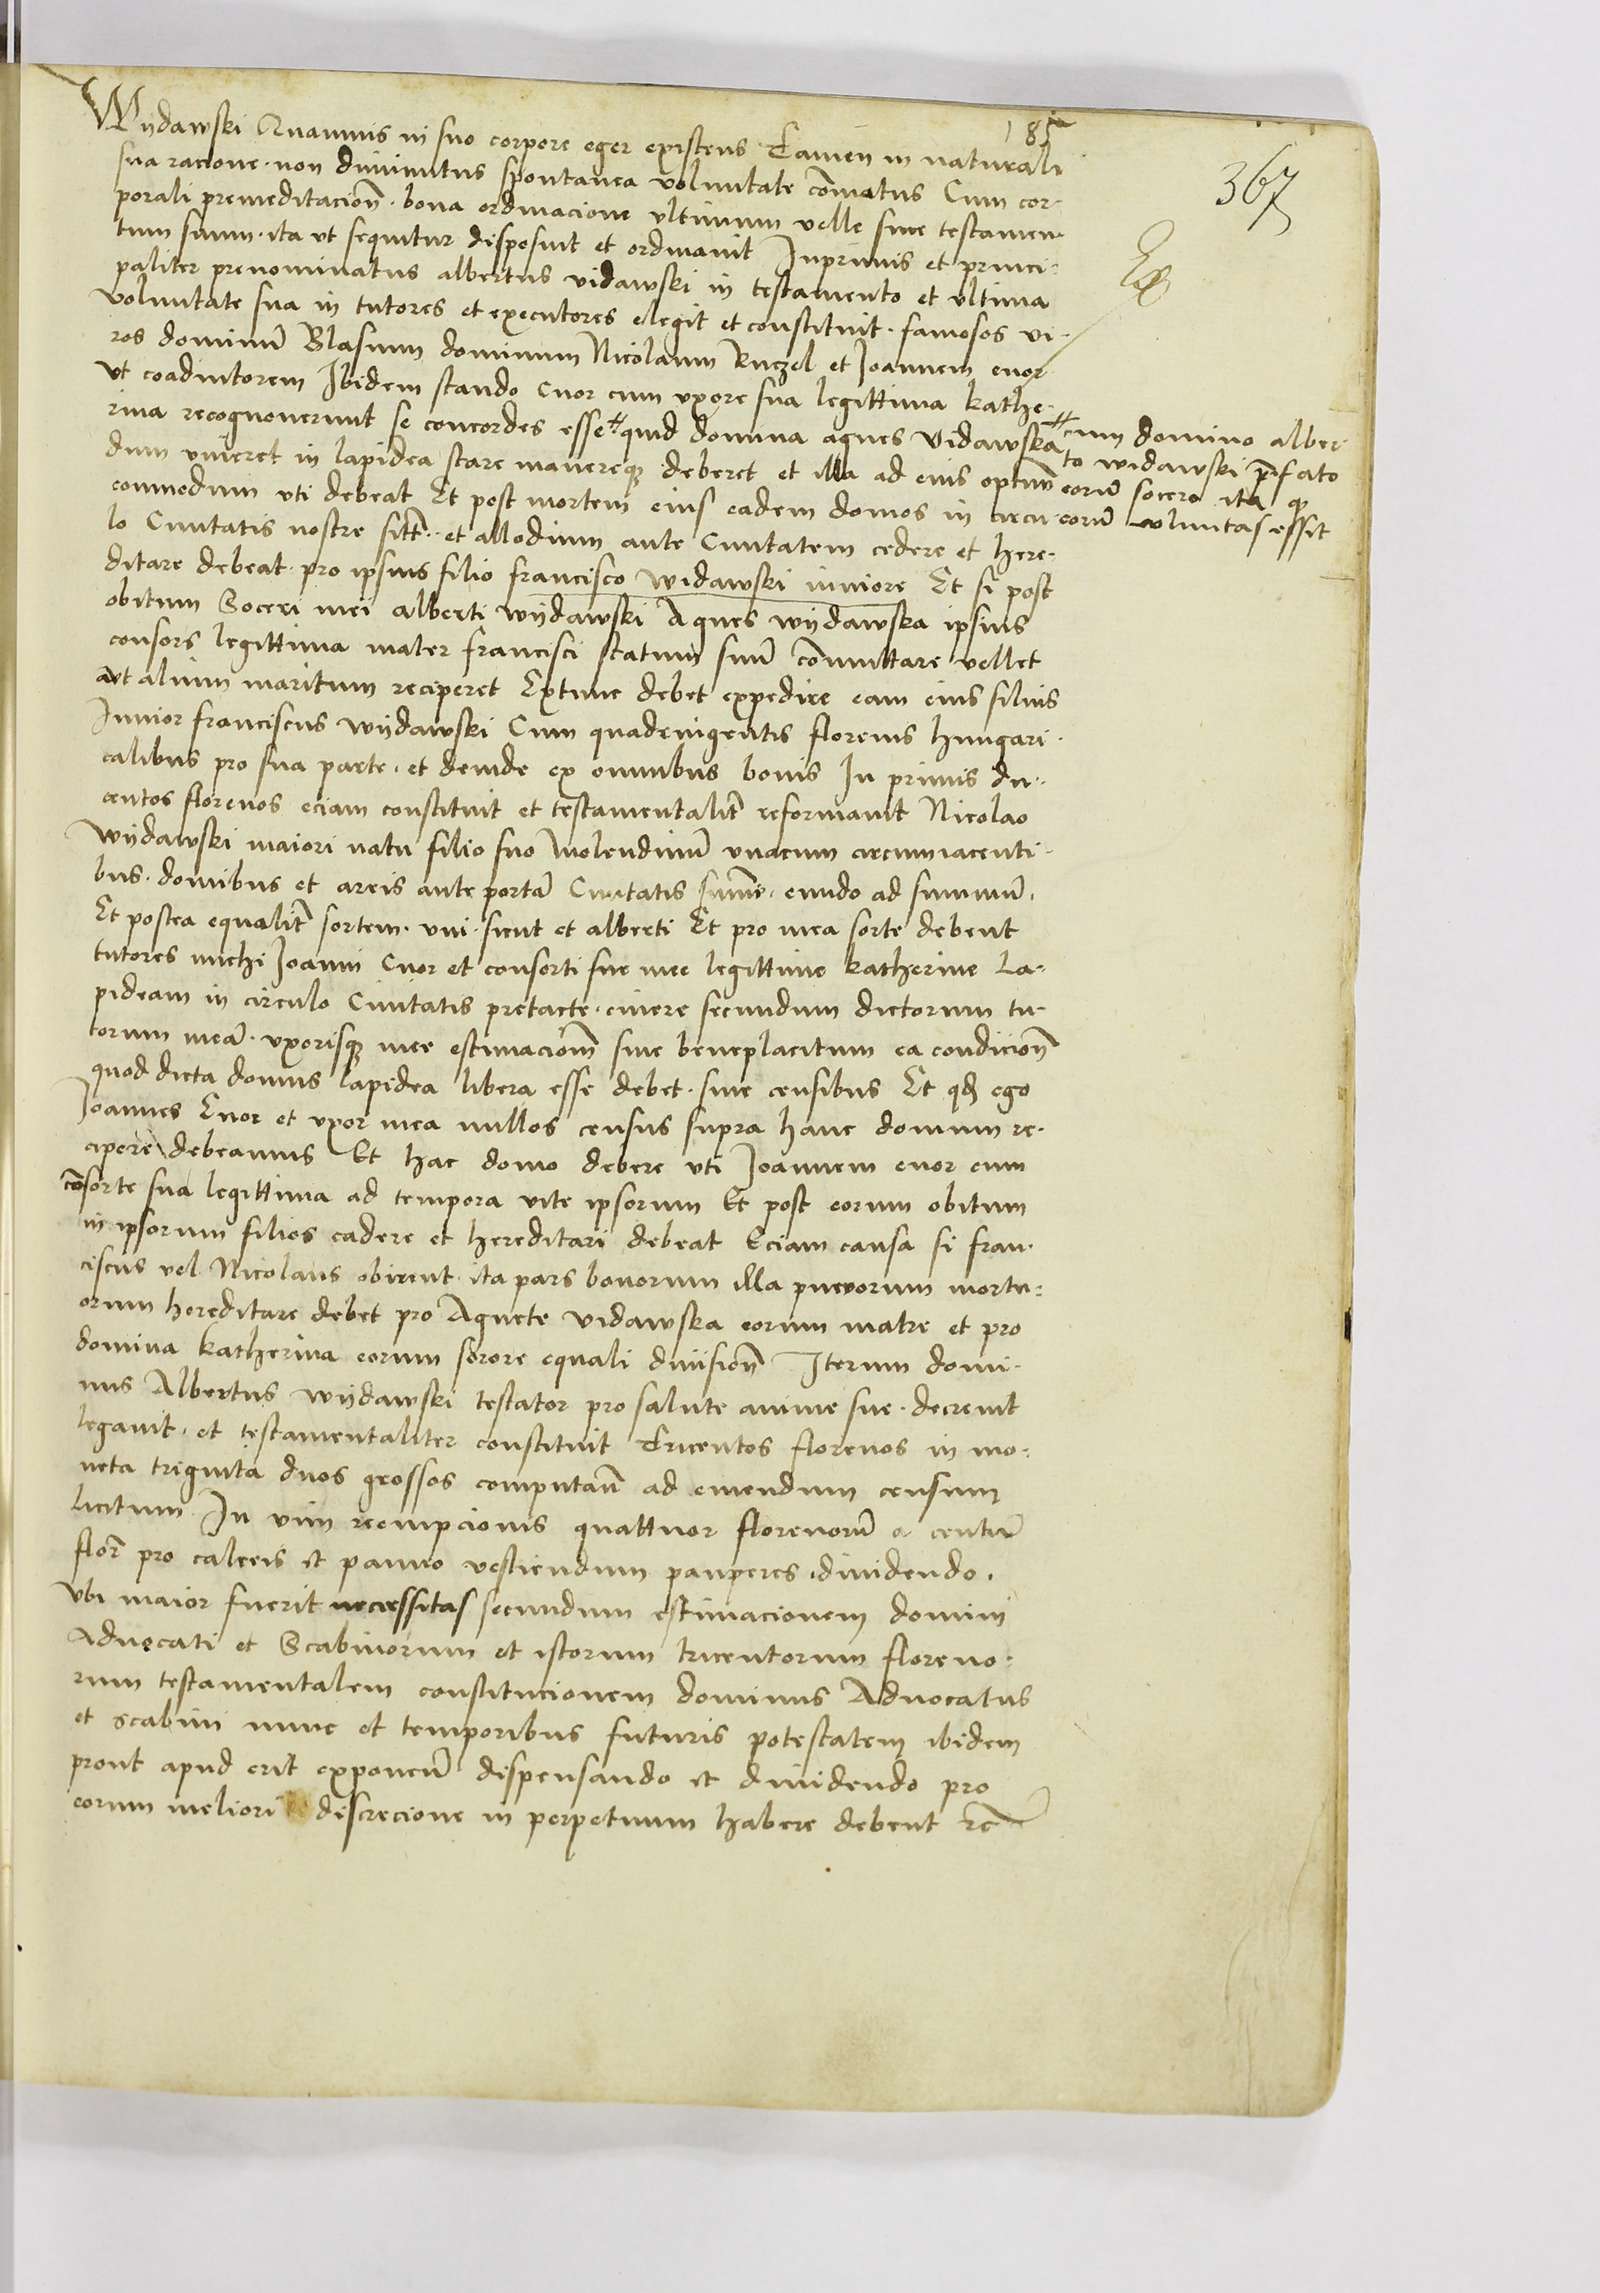 185
367
Wydawski Quamuis in suo corpore eger existens Tamen in naturali
sua racione · non diminutus spontanea voluntate com̄otus Cum cor-
porali premeditacion̄ · bona ordinacione vltimum velle siue testamen-
tum suum · ita vt sequitur disposuit et ordinauit Inprimis et princi-
paliter prenominatus albertus vidawski in testamento et vltima
voluntate sua in tutores et executores elegit et constituit · famosos vi-
ros dominū Blasium dominum Nicolaum Kuczel et Joannem enor
vt coadiutorem Ibidem stando Enor cum vxore sua legittima kathe-
rina recognouerunt se concordes esse # quid domina agnes Vidawska
# cum domino alber-
to widawski p̄fato
eorū socero ita q̨
eorū voluntas essit
dum viueret in lapidea stare manereq̨ deberet et illa ad eius optimū
commodum vti debeat Et post mortem eius eadem domos in circu-
lo Ciuitatis nostre sitt̄ · et allodium ante Ciuitatem cedere et here-
ditare debeat · pro ipsius filio francisco widawski iuniore Et si post
obitum Soceri mei alberti wydawski Agnes wydawska ipsius
consors legittima mater francisci statum suū com̄uttare vellet
aut alium maritum reciperet Extunc debet expedire eam eius filius
Junior franciscus wydawski Cum quadringentis florenis hungari-
calibus pro sua parte · et deinde ex omnibus bonis In primis du-
centos florenos eciam constituit et testamentalit̄ reformauit Nicolao
wydawski maiori natu filio suo Molendinū vnacum circumiacenti-
bus · domibus et areis ante portā Ciuitatis sum̄e · eundo ad summū ·
Et postea equalit̄ sortem · vni · sicut et alberti Et pro mea sorte debent
tutores michi Joanni Enor et consorti sue mee legittime katherine La-
pideam in circulo Ciuitatis pretacte · emere secundum dictorum tu-
torum meā · vxorisq̨ mee estimacionē siue beneplacitum ea condicion̄
quod dicta domus lapidea libera esse debet · siue censibus Et qd ego
Joannes Enor et vxor mea nullos census supra hanc domum re-
cipere debeamus Et hac domo debere vti Joannem enor cum
cōsorte sua legittima ad tempora vite ipsorum Et post eorum obitum
in ipsorum filios cadere et hereditari debeat Eciam causa si fran-
ciscus vel Nicolaus obirent · ita pars bonorum illa puerorum mortu-
orum hereditare debet pro Agnete vidawska eorum matre et pro
domina katherina eorum sorore equali diuision̄ Iterum domi-
nus Albertus wydawski testator pro salute anime sue · decreuit
legauit · et testamentaliter constituit Tricentos florenos in mo-
neta triginta duos grossos computan̄ ad emendum censum
licitum In vim reempcionis quattuor florenorū a centū
flor̄ pro calceis et panno vestiendum pauperes · diuidendo ·
vbi maior fuerit necessitas secundum estimacionem domini
Aduocati et Scabinorum et istorum tricentorum floreno-
rum testamentalem constitucionem dominus Aduocatus
et scabini nunc et temporibus futuris potestatem ibidem
prout apud erit exponen̄ dispensando et diuidendo pro
eorum meliori discrecione in perpetuum habere debent etc̄